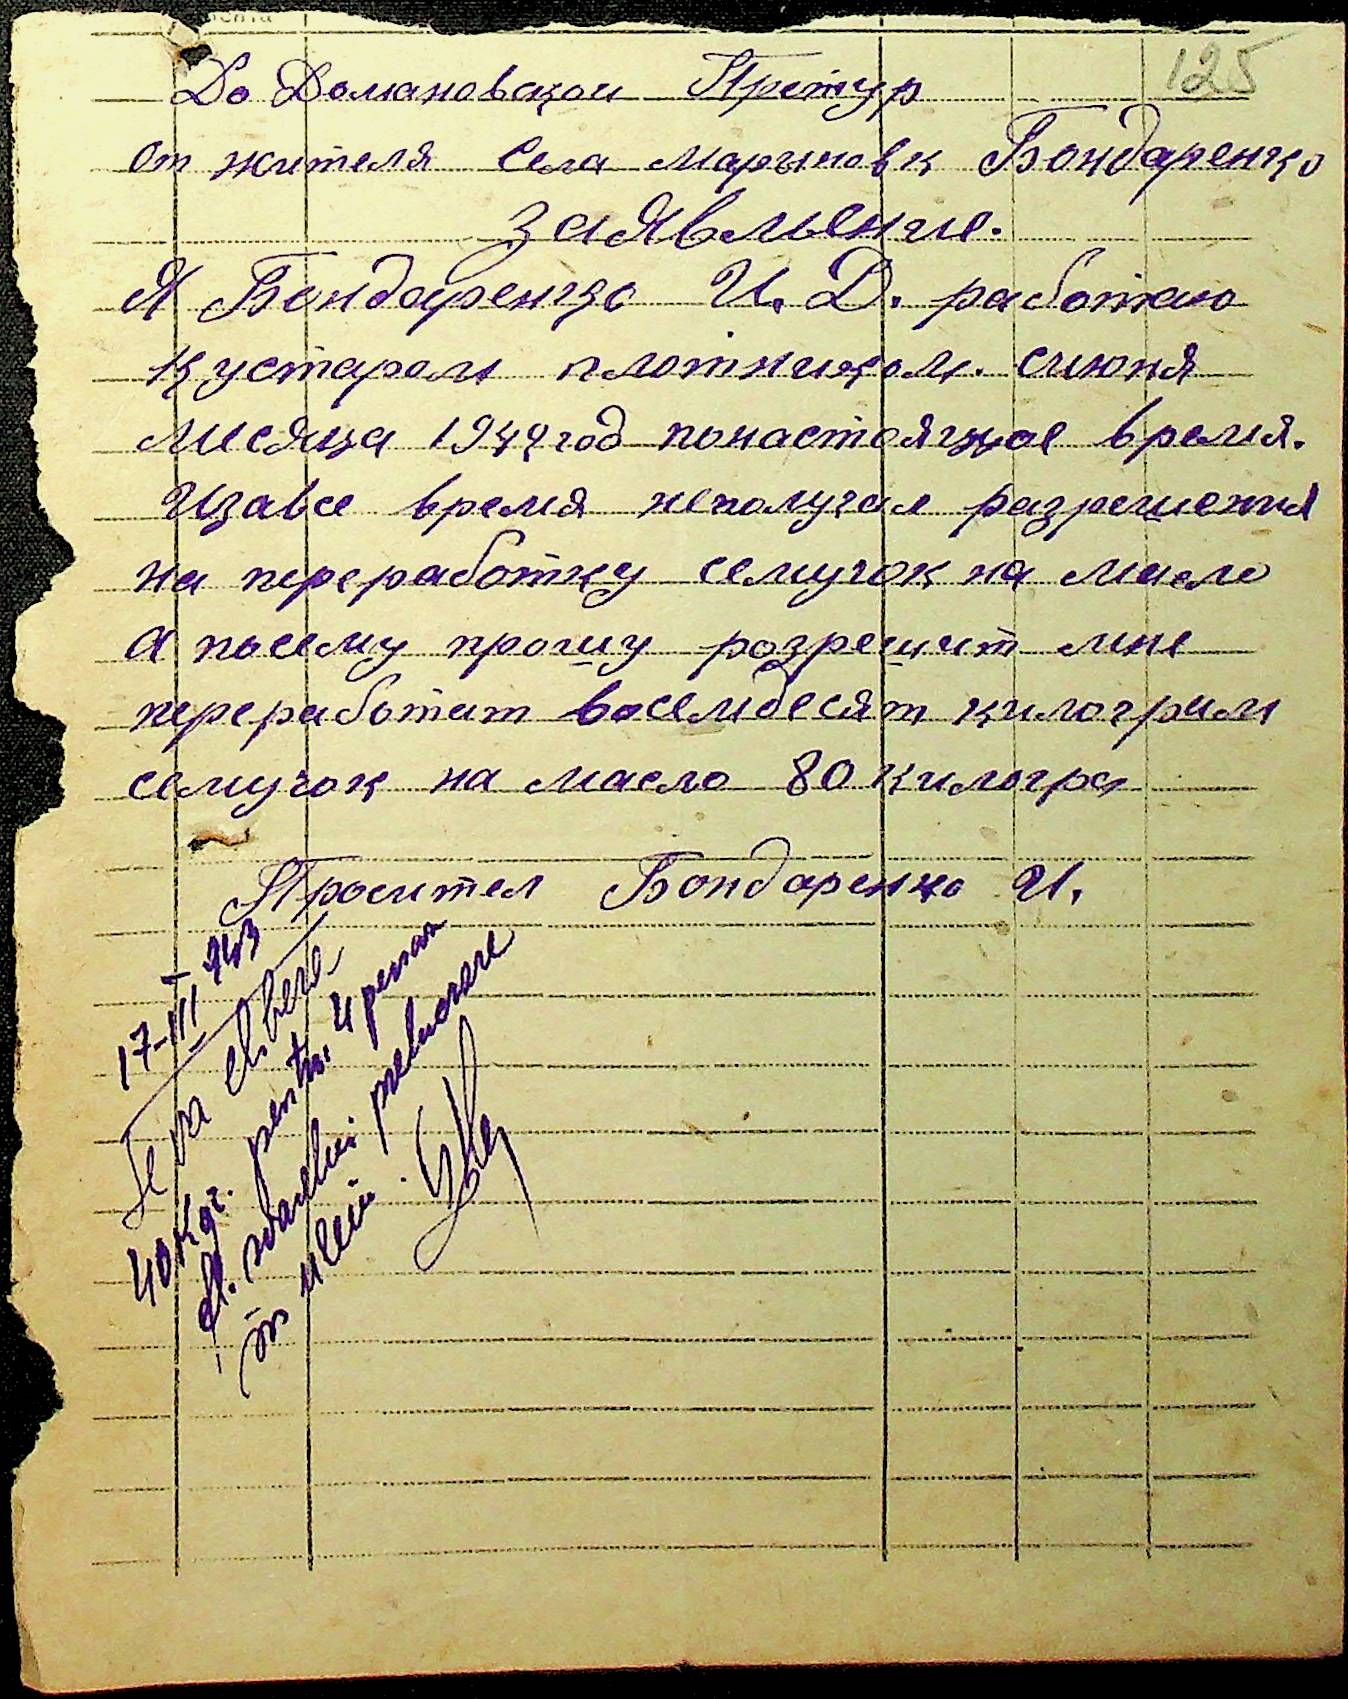 125
До Домановской Претур
от жителя села Мариновк Бондаренко
заявльение.
Я Бондаренко И. Д. работаю
кустаром плотником. сиюня
мисяца 1942 год понастоящое время.
Изавсе время неполучал разрешения
на переработку семучок на масло
А посему прошу розрешит мне
переработат восемдесят килограм
семучок на масло 80 килогра
Проситель Бондаренко И.
17-III 943
Se va elibera
40 Kgr. pentru 4 persoan
fl. soarelui prelucrare
în ulei.